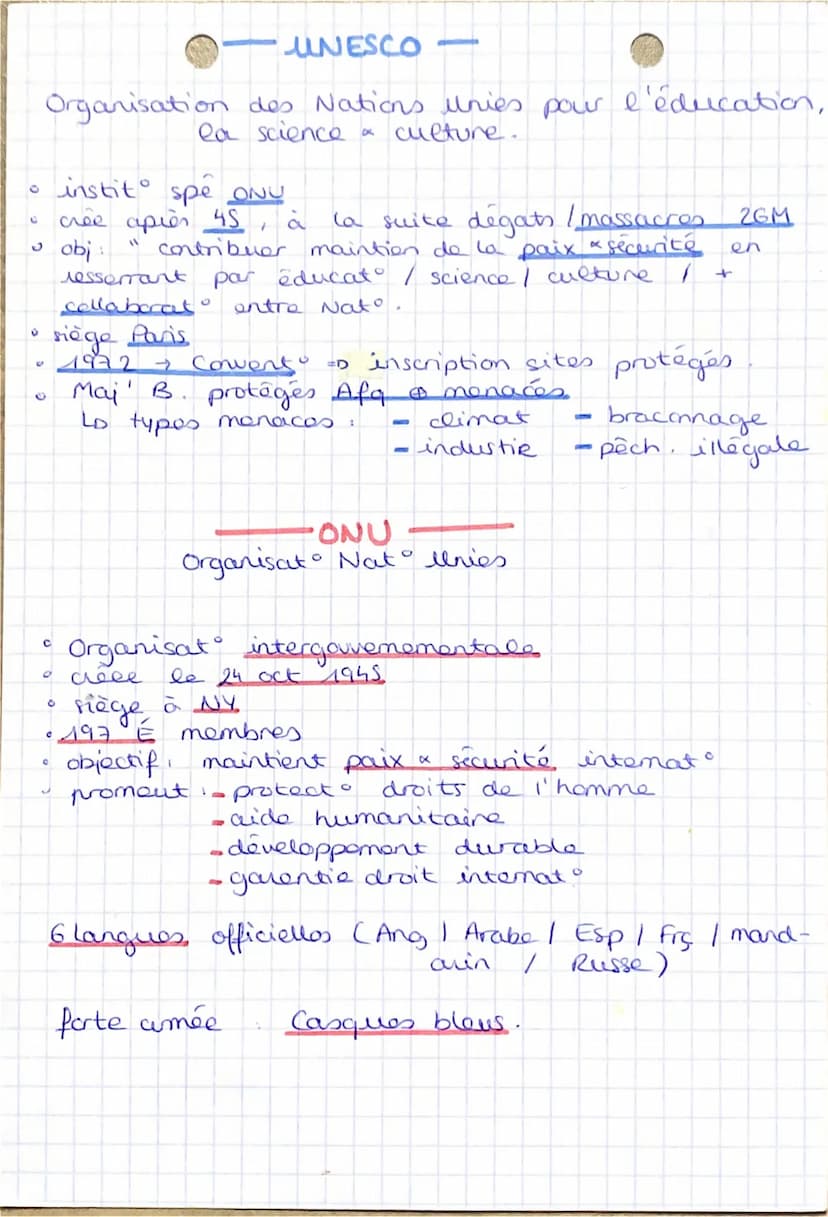 — UNESCO —
Organisation des Nations Unies pour l'éducation,
la science & culture.
• instit° spé ONU
• crée après 45, à la suite dégats / massacres 2GM
• obj : " contribuer maintien de la paix & sécurité en
resserrant par éducat° / science / culture / +
collaborat° entre Nat°.
• siège Paris
• 1972 → Convent° => inscription sites protégés.
• Maj' B. protégés Afq ⊕ menacés
↳ types menaces : - climat - braconnage
- industrie - pêch. illégale
— ONU —
Organisat° Nat° Unies
• Organisat° intergouvernementale
• créée le 24 oct 1945
• siège à NY
• 197 É membres
• objectif : maintient paix & sécurité internat°
• promeut : - protect° droits de l'homme
- aide humanitaire
- développement durable
- garantie droit internat°
6 langues officielles (Ang / Arabe / Esp / Frç / mand-
arin / Russe)
forte armée : Casques bleus.